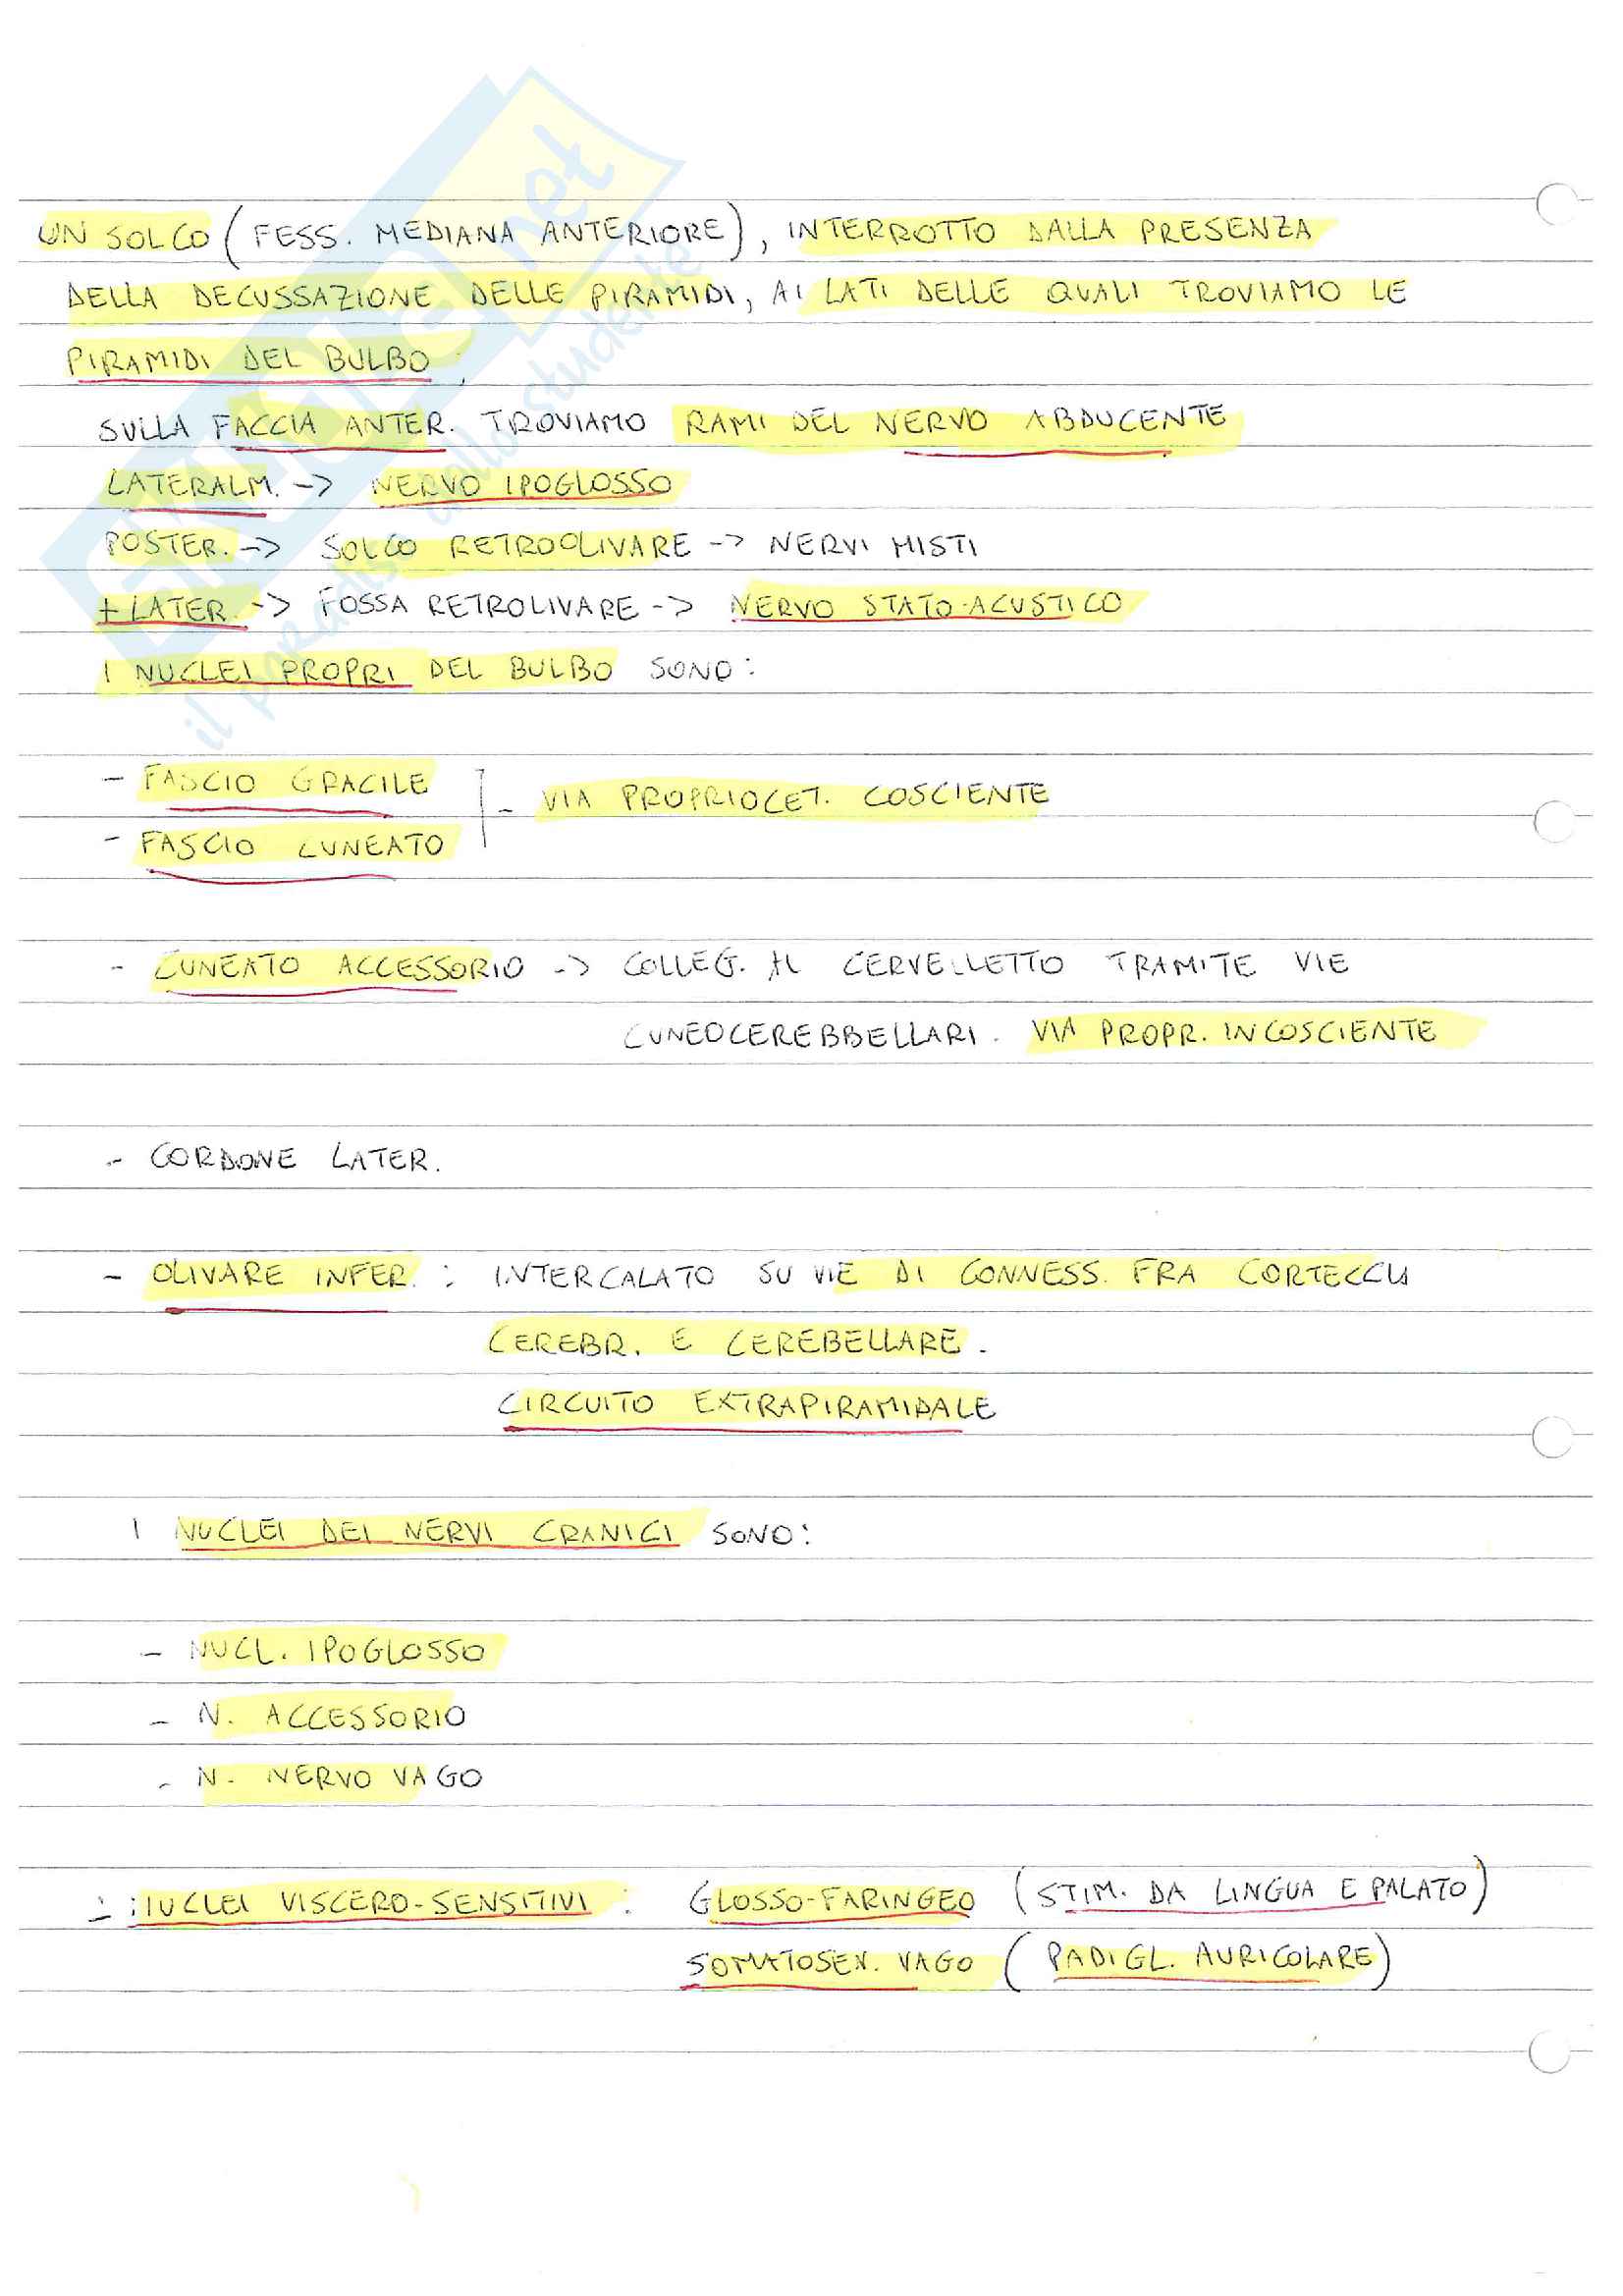 UN SOLCO (FESS. MEDIANA ANTERIORE), INTERROTTO DALLA PRESENZA
DELLA DECUSSAZIONE DELLE PIRAMIDI, AI LATI DELLE QUALI TROVIAMO LE
PIRAMIDI DEL BULBO.
SULLA FACCIA ANTER. TROVIAMO RAMI DEL NERVO ABDUCENTE
LATERALM. -> NERVO IPOGLOSSO
POSTER. -> SOLCO RETROOLIVARE -> NERVI MISTI
+ LATER. -> FOSSA RETROLIVARE -> NERVO STATO-ACUSTICO
I NUCLEI PROPRI DEL BULBO SONO:
- FASCIO GRACILE
- VIA PROPRIOCET. COSCIENTE
- FASCIO CUNEATO
- CUNEATO ACCESSORIO -> COLLEG. AL CERVELLETTO TRAMITE VIE
CUNEOCEREBBELLARI. VIA PROPR. INCOSCIENTE
- CORDONE LATER.
- OLIVARE INFER. : INTERCALATO SU VIE DI CONNESS. FRA CORTECCIA
CEREBR. E CEREBELLARE.
CIRCUITO EXTRAPIRAMIDALE
I NUCLEI DEI NERVI CRANICI SONO:
- NUCL. IPOGLOSSO
- N. ACCESSORIO
- N. NERVO VAGO
- NUCLEI VISCERO-SENSITIVI : GLOSSO-FARINGEO (STIM. DA LINGUA E PALATO)
SOMATOSEN. VAGO (PADIGL. AURICOLARE)
SKUOLA.net
il paradiso dello studente